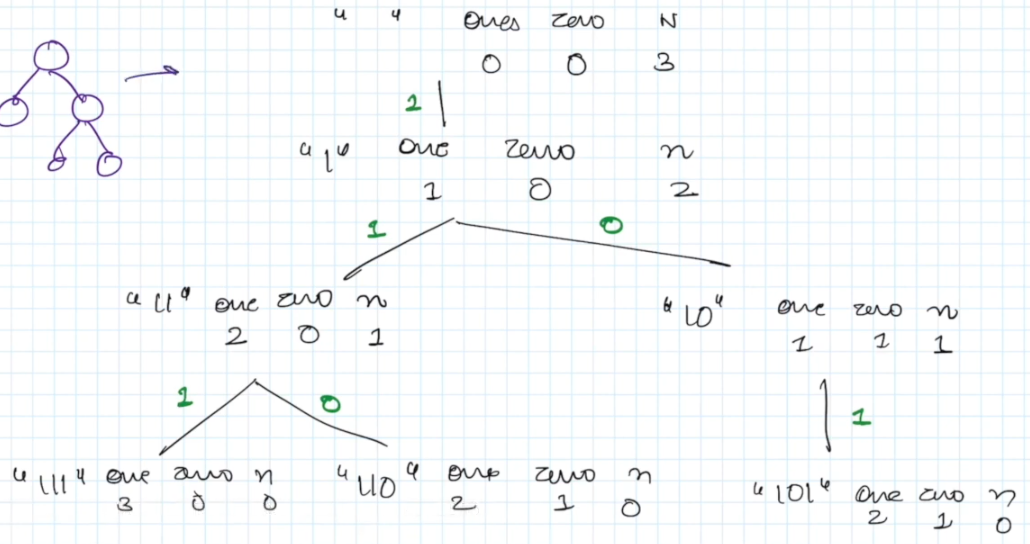 " " Ones zero N
0 0 3
1
"1" one zero n
1 0 2
1 0
"11" one zero n
2 0 1
"10" one zero n
1 1 1
1 0
1
"111" one zero n
3 0 0
"110" one zero n
2 1 0
"101" one zero n
2 1 0